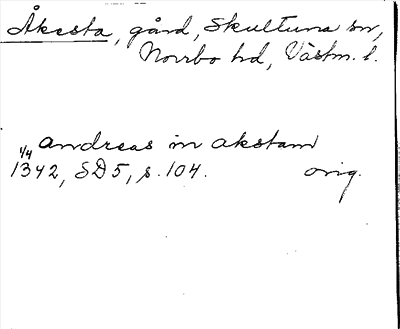 Åkesta, gård, Skultuna sn,
Norrbo hd, Västm. l.
andreas in akstam
1/4 1342, SD 5, s. 104. orig.